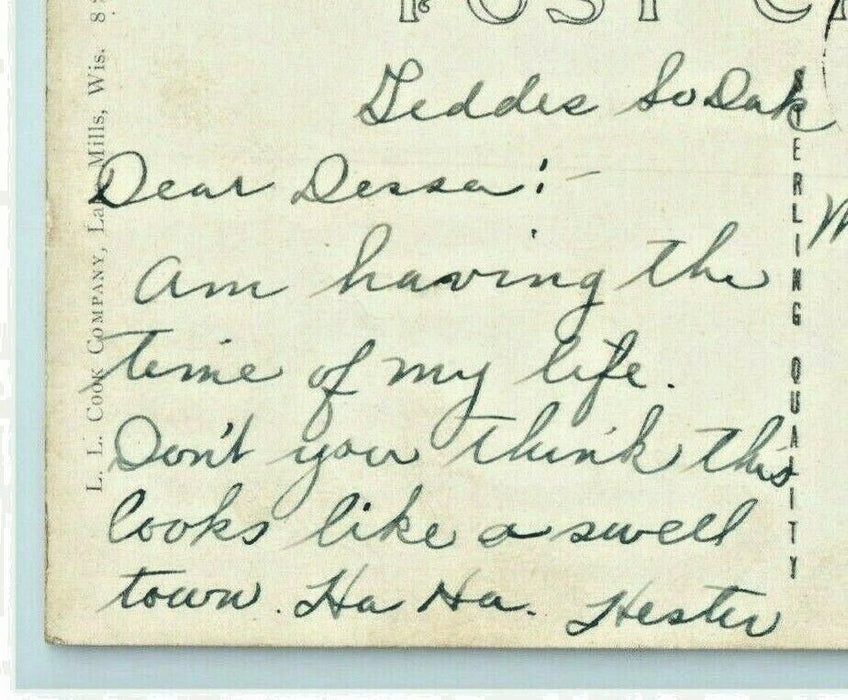 POST
Geddes So Dak
Dear Dessa:-
Am having the
time of my life.
Don't you think this
looks like a swell
town. Ha Ha. Hester
L. L. COOK COMPANY, Lake Mills, Wis.
STERLING QUALITY